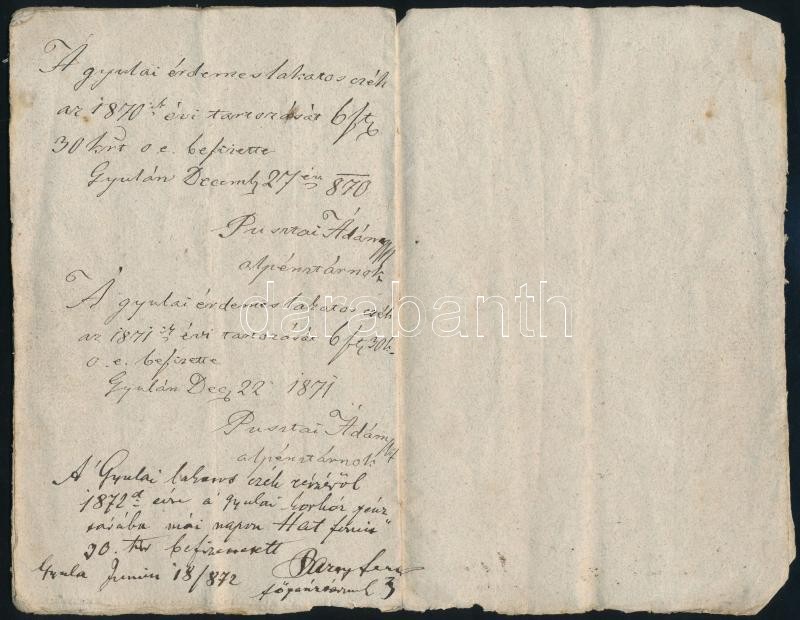 A gyulai érdemes lakatos czéh
az 1870ik évi tartozását 6 ft
30 krt o. e. befizette
Gyulán Decemb 27én 870
Pusztai Ádám
alpénztárnok
A gyulai érdemes lakatos czéh
az 1871ik évi tartozását 6 ft 30 k
o. e. befizette
Gyulán Dec 22 1871
Pusztai Ádám
alpénztárnok
A Gyulai lakatos czéh részéről
1872 évre a gyulai korház pénz
tárába mai napon Hat forint
30. kr befizetett
Gyula Junius 18/872
darabanth